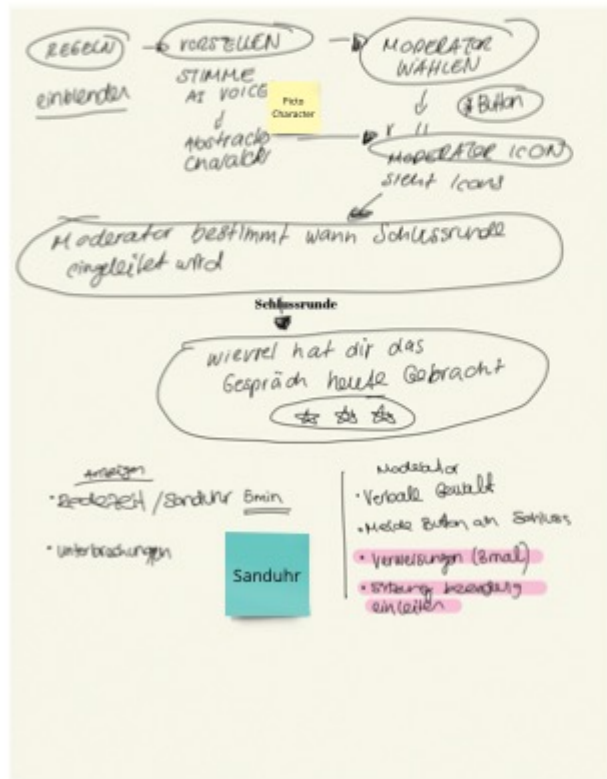 REGELN → VORSTELLEN → MODERATOR
WÄHLEN
einblenden
STIMME
AI VOICE
Picto
Character
Button
Abstracte
Charakter
MODERATOR ICON
sieht Icons
Moderator bestimmt wann Schlussrunde
eingeleitet wird
Schlussrunde
wieviel hat dir das
Gespräch heute Gebracht
Anzeigen
• Redezeit / Sanduhr 5min
• Unterbrechungen
Sanduhr
Moderator
• Verbale Gewalt
• Melde Button am Schluss
• Verweisungen (3mal)
• Sitzung
einleiten